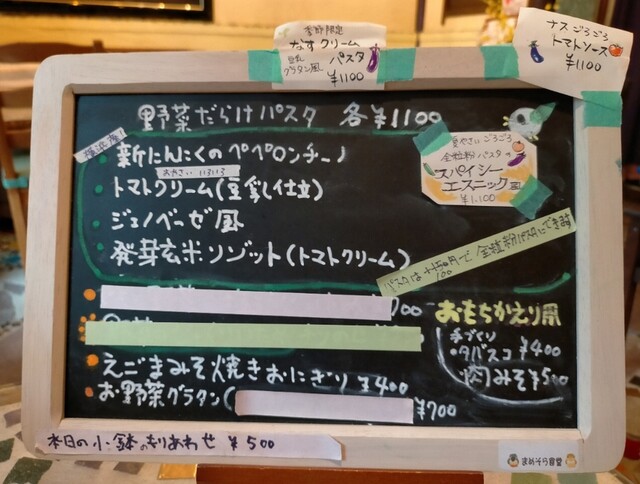 季節限定
なす クリーム
豆乳 パスタ
グラタン風
¥1100
ナスごろごろ
トマトソース
¥1100
野菜だらけパスタ 各¥1100
新にんにくのペペロンチーノ
おやさい いろいろ
トマトクリーム(豆乳仕立)
ジェノベーゼ風
発芽玄米リゾット(トマトクリーム)
夏やさいごろごろ
全粒粉パスタの
スパイシー
エスニック風
¥1,100
パスタは+¥100円で全粒粉パスタにできます
おもちかえり用
手づくり
・タバスコ ¥400
・肉みそ ¥500
えごまみそ焼きおにぎり ¥400
お野菜グラタン( ¥700
本日の小鉢のもりあわせ ¥500
まめぞら食堂